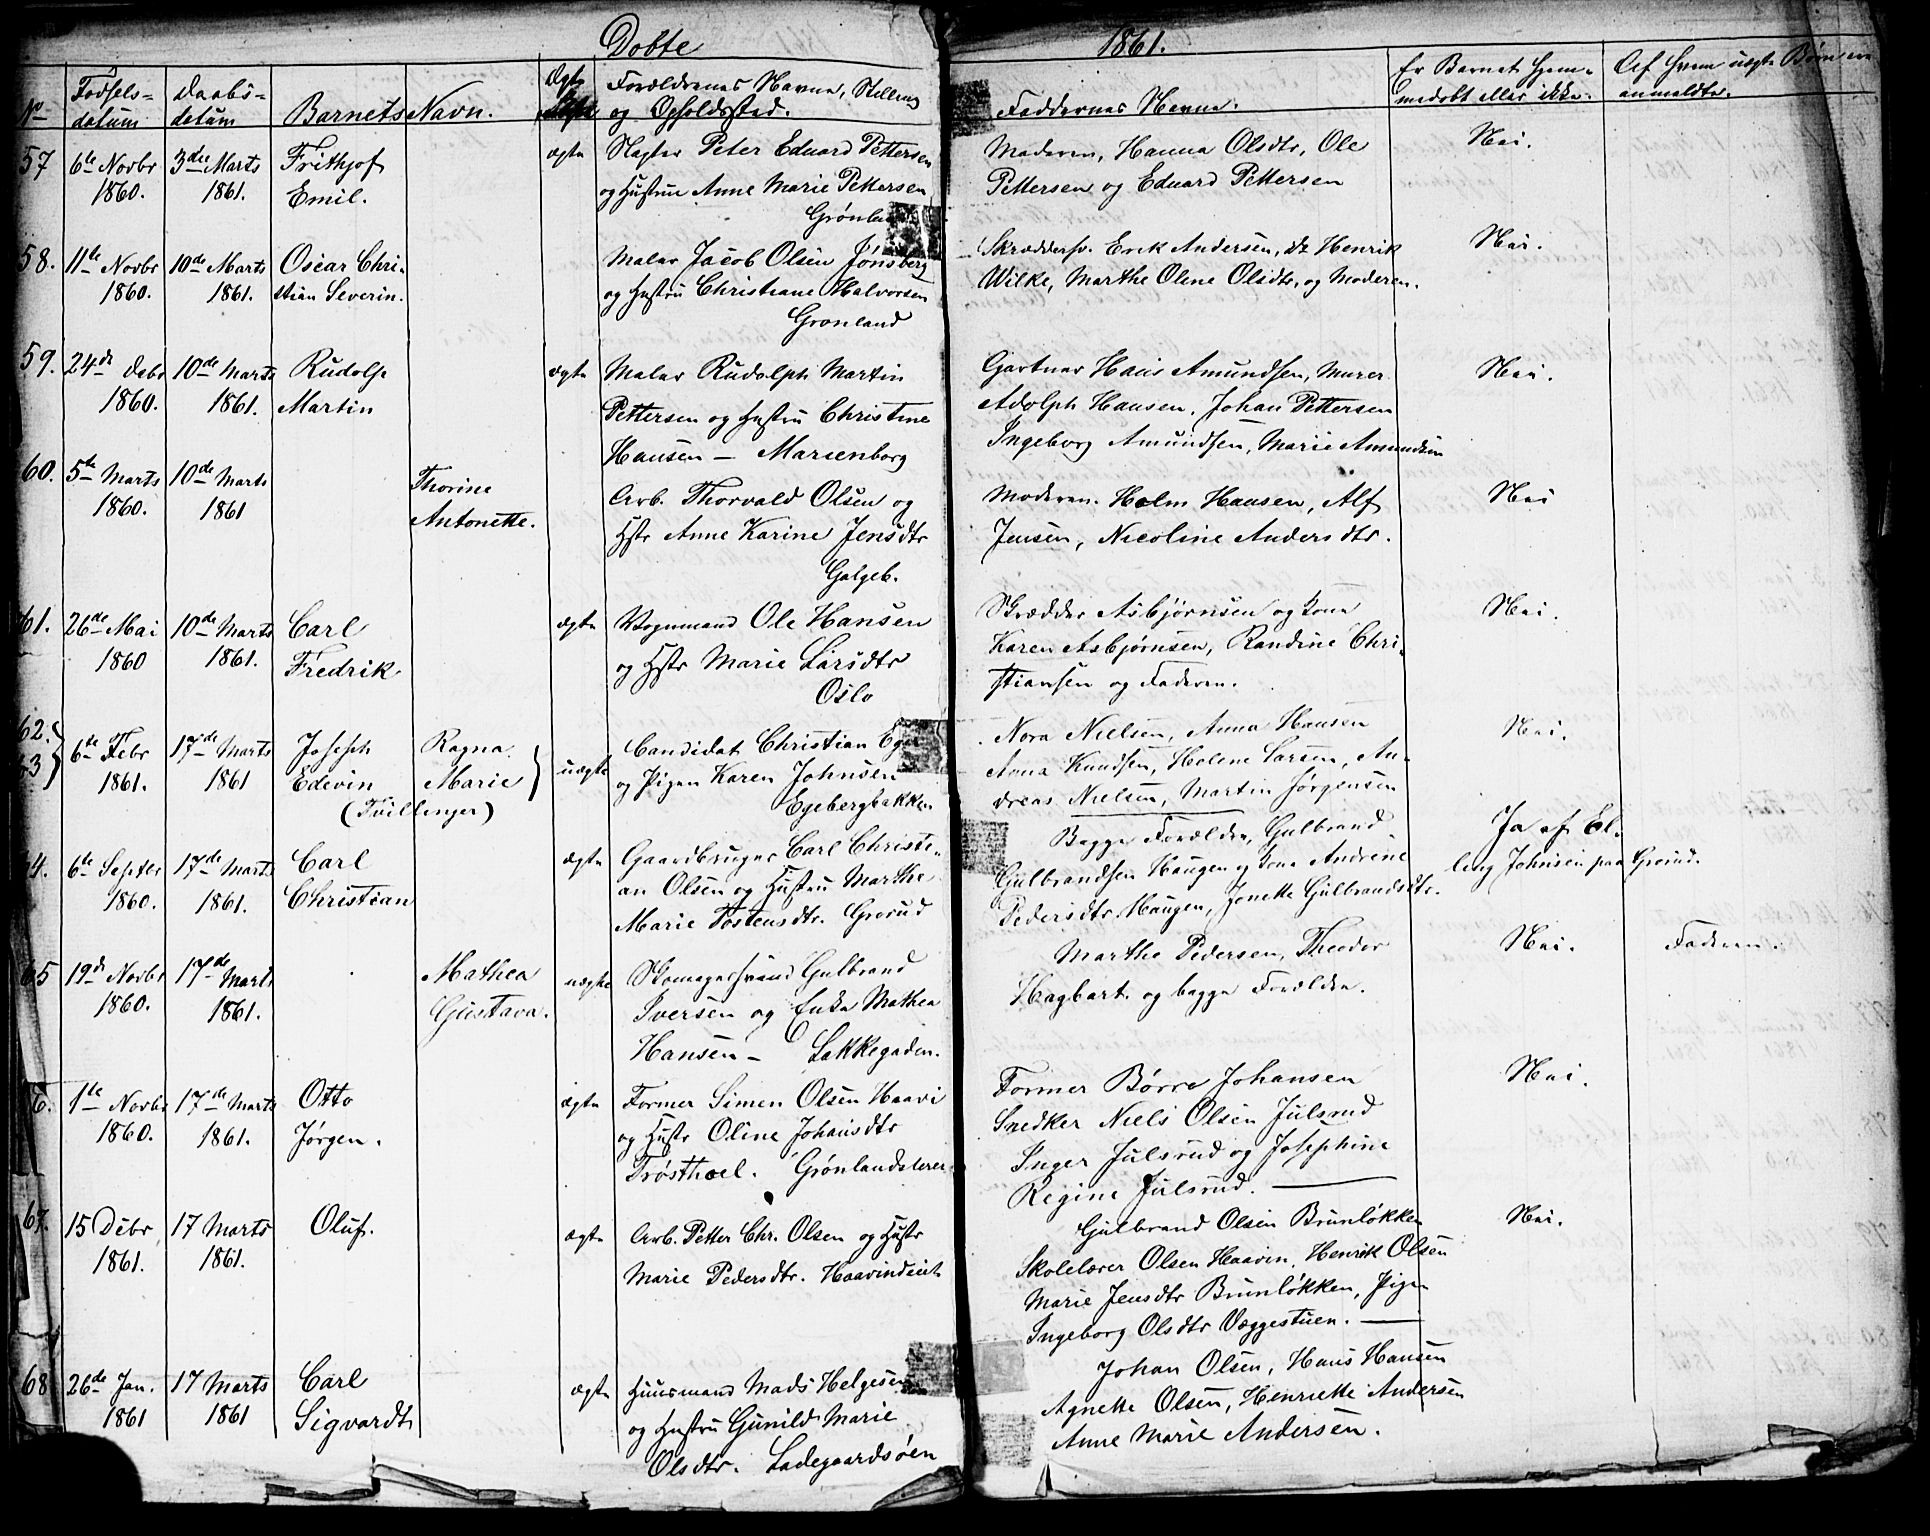 Døbte 1861.
No
Fødsels=
datum
Daabs=
datum
Barnets Navn.
Ægte
Forældrenes Navne, Stilling
og Opholdssted.
Faddernes Navne.
Er Barnet hjem=
medøbt eller ikke.
Af hvem uægte Børn ere
anmeldte.
57 6te Novbr 3die Marts Frithjof ægte Slagter Peter Eduard Pettersen
1860. 1861. Emil. og Hustrue Anne Marie Pettersen
Grønland
Moderen, Hanna Olsdtr, Ole Nei.
Pettersen og Eduard Pettersen
58. 11te Novbr 10de Marts Oscar Chri- Maler Jacob Olsen Jønsberg
1860. 1861. stian Severin. og Hustru Christiane Halvorsen
Grønland
Skræddersv. Erik Andersen, do Henrik Nei.
Wilke, Marthe Oline Olsdtr, og Moderen.
59. 24de Debr 10de Marts Rudolf ægte Maler Rudolph Martin
1860. 1861. Martin Pettersen og Hustru Christine
Hansen — Marienborg
Gartner Hans Amundsen, Murer Nei.
Adolph Hansen, Johan Pettersen
Ingeborg Amundsen, Marie Amundsen
60. 5te Marts 10de Marts Thorine Arb. Thorvald Olsen og
1860. 1861 Antonette. Hstr Anne Karine Jensdtr
Galgeb.
Moderen. Holm Hansen, Alf Nei
Jensen, Nicoline Andersdtr.
61. 26de Mai 10de Marts Carl ægte Vognmand Ole Hansen
1860 1861. Fredrik og Hstr Marie Larsdtr
Oslo
Skrædder Asbjørnsen og Kone Nei.
Karen Asbjørnsen, Randine Chri-
stiansen og Faderen.
62. 6te Febr 17de Marts Joseph Ragna uægte Candidat Christian Eger
63 1861. 1861 Edevin Marie og Pigen Karen Johnsen
(Tvillinger) Egebergbakken
Nora Nielsen, Anna Hansen Nei.
Anna Knudsen, Helene Larsen, An-
dreas Nielsen, Martin Jørgensen
4. 6te Septbr 17de Marts Carl ægte Gaardbruger Carl Christi-
1860. 1861. Christian an Olsen og Hustru Marthe
Marie Tostensdtr. Grorud
Begge Forældre, Gulbrand Ja af El-
Gulbrandsen Haugen og Kone Andrine lev Johnsen paa Grorud.
Pedersdtr Haugen, Jenette Gulbrandsdtr.
65 19de Novbr 17de Marts Mathea uægte Skomagersvend Gulbrand
1860. 1861. Gustava. Iversen og Enke Mathea
Hansen — Lakkegaden.
Marthe Pedersen, Theodor Nei. Faderen.
Hagbart. og begge Forældre.
6. 1te Novbr 17de Marts Otto ægte Former Simen Olsen Haavi
1860. 1861. Jørgen. og Hustr Oline Johansdtr
Trøsthoel. Grønlandsleret
Former Børre Johansen Nei.
Snedker Niels Olsen Julsrud
Inger Julsrud og Josephine
Regine Julsrud.
67. 15 Debr 17 Marts Oluf. ægte Arb. Petter Chr. Olsen og Hustr
1861. 1861. Marie Pedersdtr. Haavindeiet
Gulbrand Olsen Brunløkken Nei.
Skolelærer Olsen Haavin, Henrik Olsen
Marie Jensdtr Brunløkken, Pigen
Ingeborg Olsdtr Væggestuen.
68 26de Jan. 17 Marts Carl ægte Huusmand Mads Helgesen
1861 1861 Sigvardt og Hustru Gunild Marie
Olsdtr. Ladegaardsøen
Johan Olsen, Hans Hansen
Agnette Olsen, Henriette Andersen
Anne Marie Andersen.